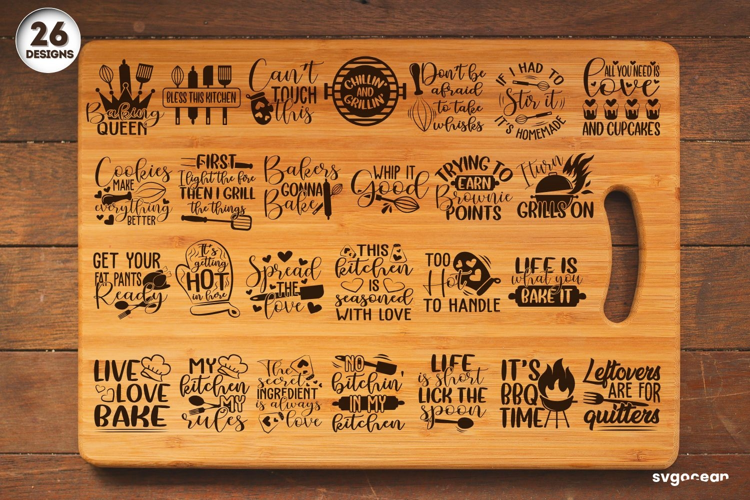 26
DESIGNS
Baking
QUEEN
BLESS THIS KITCHEN
Can't
TOUCH
this
CHILLIN'
AND
GRILLIN'
Don't be
afraid
to take
whisks
IF I HAD TO
Stir it
IT'S HOMEMADE
ALL YOU NEED IS
Love
AND CUPCAKES
Cookies
MAKE
everything
BETTER
FIRST
I light the fire
THEN I GRILL
the things
Bakers
GONNA
Bake
WHIP IT
Good
TRYING TO
EARN
Brownie
POINTS
I turn
GRILLS ON
GET YOUR
FAT PANTS
Ready
It's
getting
HOT
in here
Spread
THE
love
THIS
kitchen
IS
seasoned
WITH LOVE
TOO
Hot
TO HANDLE
LIFE IS
what you
BAKE IT
LIVE
LOVE
BAKE
MY
kitchen
MY
rules
The
secret
INGREDIENT
is always
love
NO
bitchin'
IN MY
kitchen
LIFE
is short
LICK THE
spoon
IT'S
BBQ
TIME
Leftovers
ARE FOR
quitters
svgocean